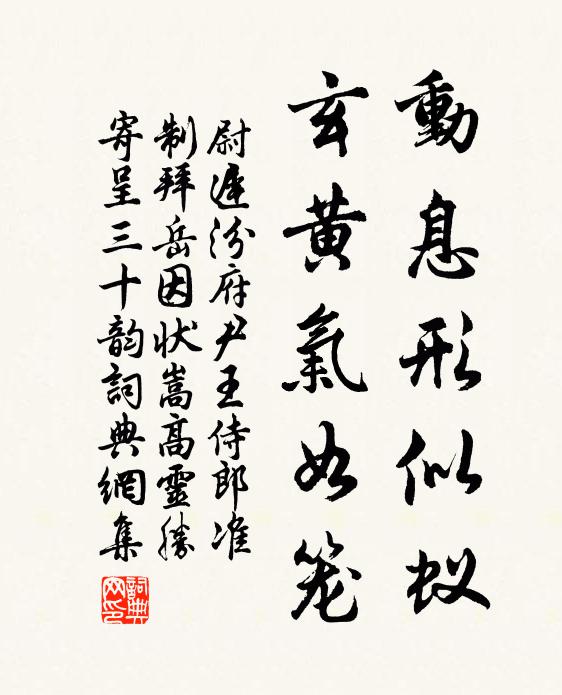 動息形似蚁
玄黄氣如笼
尉遲汾府尹王侍郎准
制拜岳因状嵩高靈勝
寄呈三十韵詞典網集
詞典网印